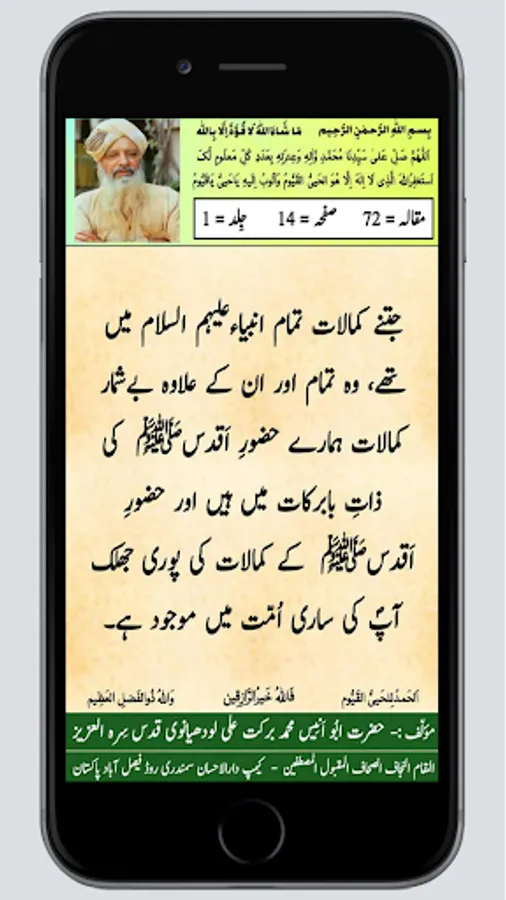 بِسمِ اللهِ الرَّحمٰنِ الرَّحِیم مَا شَاءَاللهُ لَا قُوَّةَ اِلَّا بِاللهِ
اَللّٰهُمَّ صَلِّ عَلٰی سَیِّدِنَا مُحَمَّدٍ وَّاٰلِهٖ وَعِتْرَتِهٖ بِعَدَدِ کُلِّ مَعْلُوْمٍ لَّکَ
اَستَغفِرُاللهَ الَّذِی لَا اِلٰهَ اِلَّا هُوَ الحَیُّ القَیُّومُ وَاَتُوبُ اِلَیهِ یَاحَیُّ یَاقَیُّومُ
مقالہ = 72 صفحہ = 14 جِلد = 1
جتنے کمالات تمام انبیاءعلیہم السلام میں
تھے، وہ تمام اور ان کے علاوہ بےشمار
کمالات ہمارے حضورِ اَقدسﷺ کی
ذاتِ بابرکات میں ہیں اور حضورِ
اَقدسﷺ کے کمالات کی پوری جھلک
آپؐ کی ساری اُمّت میں موجود ہے۔
اَلحَمدُلِلحَیِّ القَیُّوم فَاللهُ خَیرُالرَّازِقِین وَاللهُ ذُوالفَضلِ العَظِیم
مؤلّف :- حضرت ابُو اَنیس محمد برکت علی لودھیانوی قدس سِرہ العزیز
المقام النجاف الصحاف المقبول المصطفین - کیمپ دارالاحسان سمندری روڈ فیصل آباد پاکستان